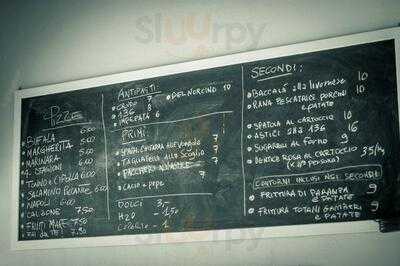 Sluurrpy
PIZZE
BUFALA 6.00
MARGHERITA 5.00
MARINARA
4 STAGIONI
TONNO e CIPOLLA 6.00
SALAMINO PICCANTE 6.00
NAPOLI 6.00
CALZONE 7.50
FRUTTI MARE 7.50
ANTIPASTI:
CRUDO 7
A36 8
IMPEPATA 6
DEL NORCINO 10
PRIMI
SPAGHI. CHITARRA ALLE VONGOLE 7
TAGLIATELLA allo Scoglio 7
PACCHERO 7
CACIO e pepe 7
DOLCI 3,-
H2O 1.50
COPERTO - 1
SECONDI:
BACCALÀ alla livornese 10
RANA PESCATRICE PORCINI e PATATE 10
SPATOLA AL CARTOCCIO 10
ASTICI alla A36 16
SUGARELLI al forno 9
DENTICE ROSA AL CARTOCCIO 35/kg
(x 2 persone)
CONTORNI INCLUSI NEI SECONDI
FRITTURA DI PARANZA e PATATE 9
FRITTURA TOTANI GAMBERI e PATATE 9